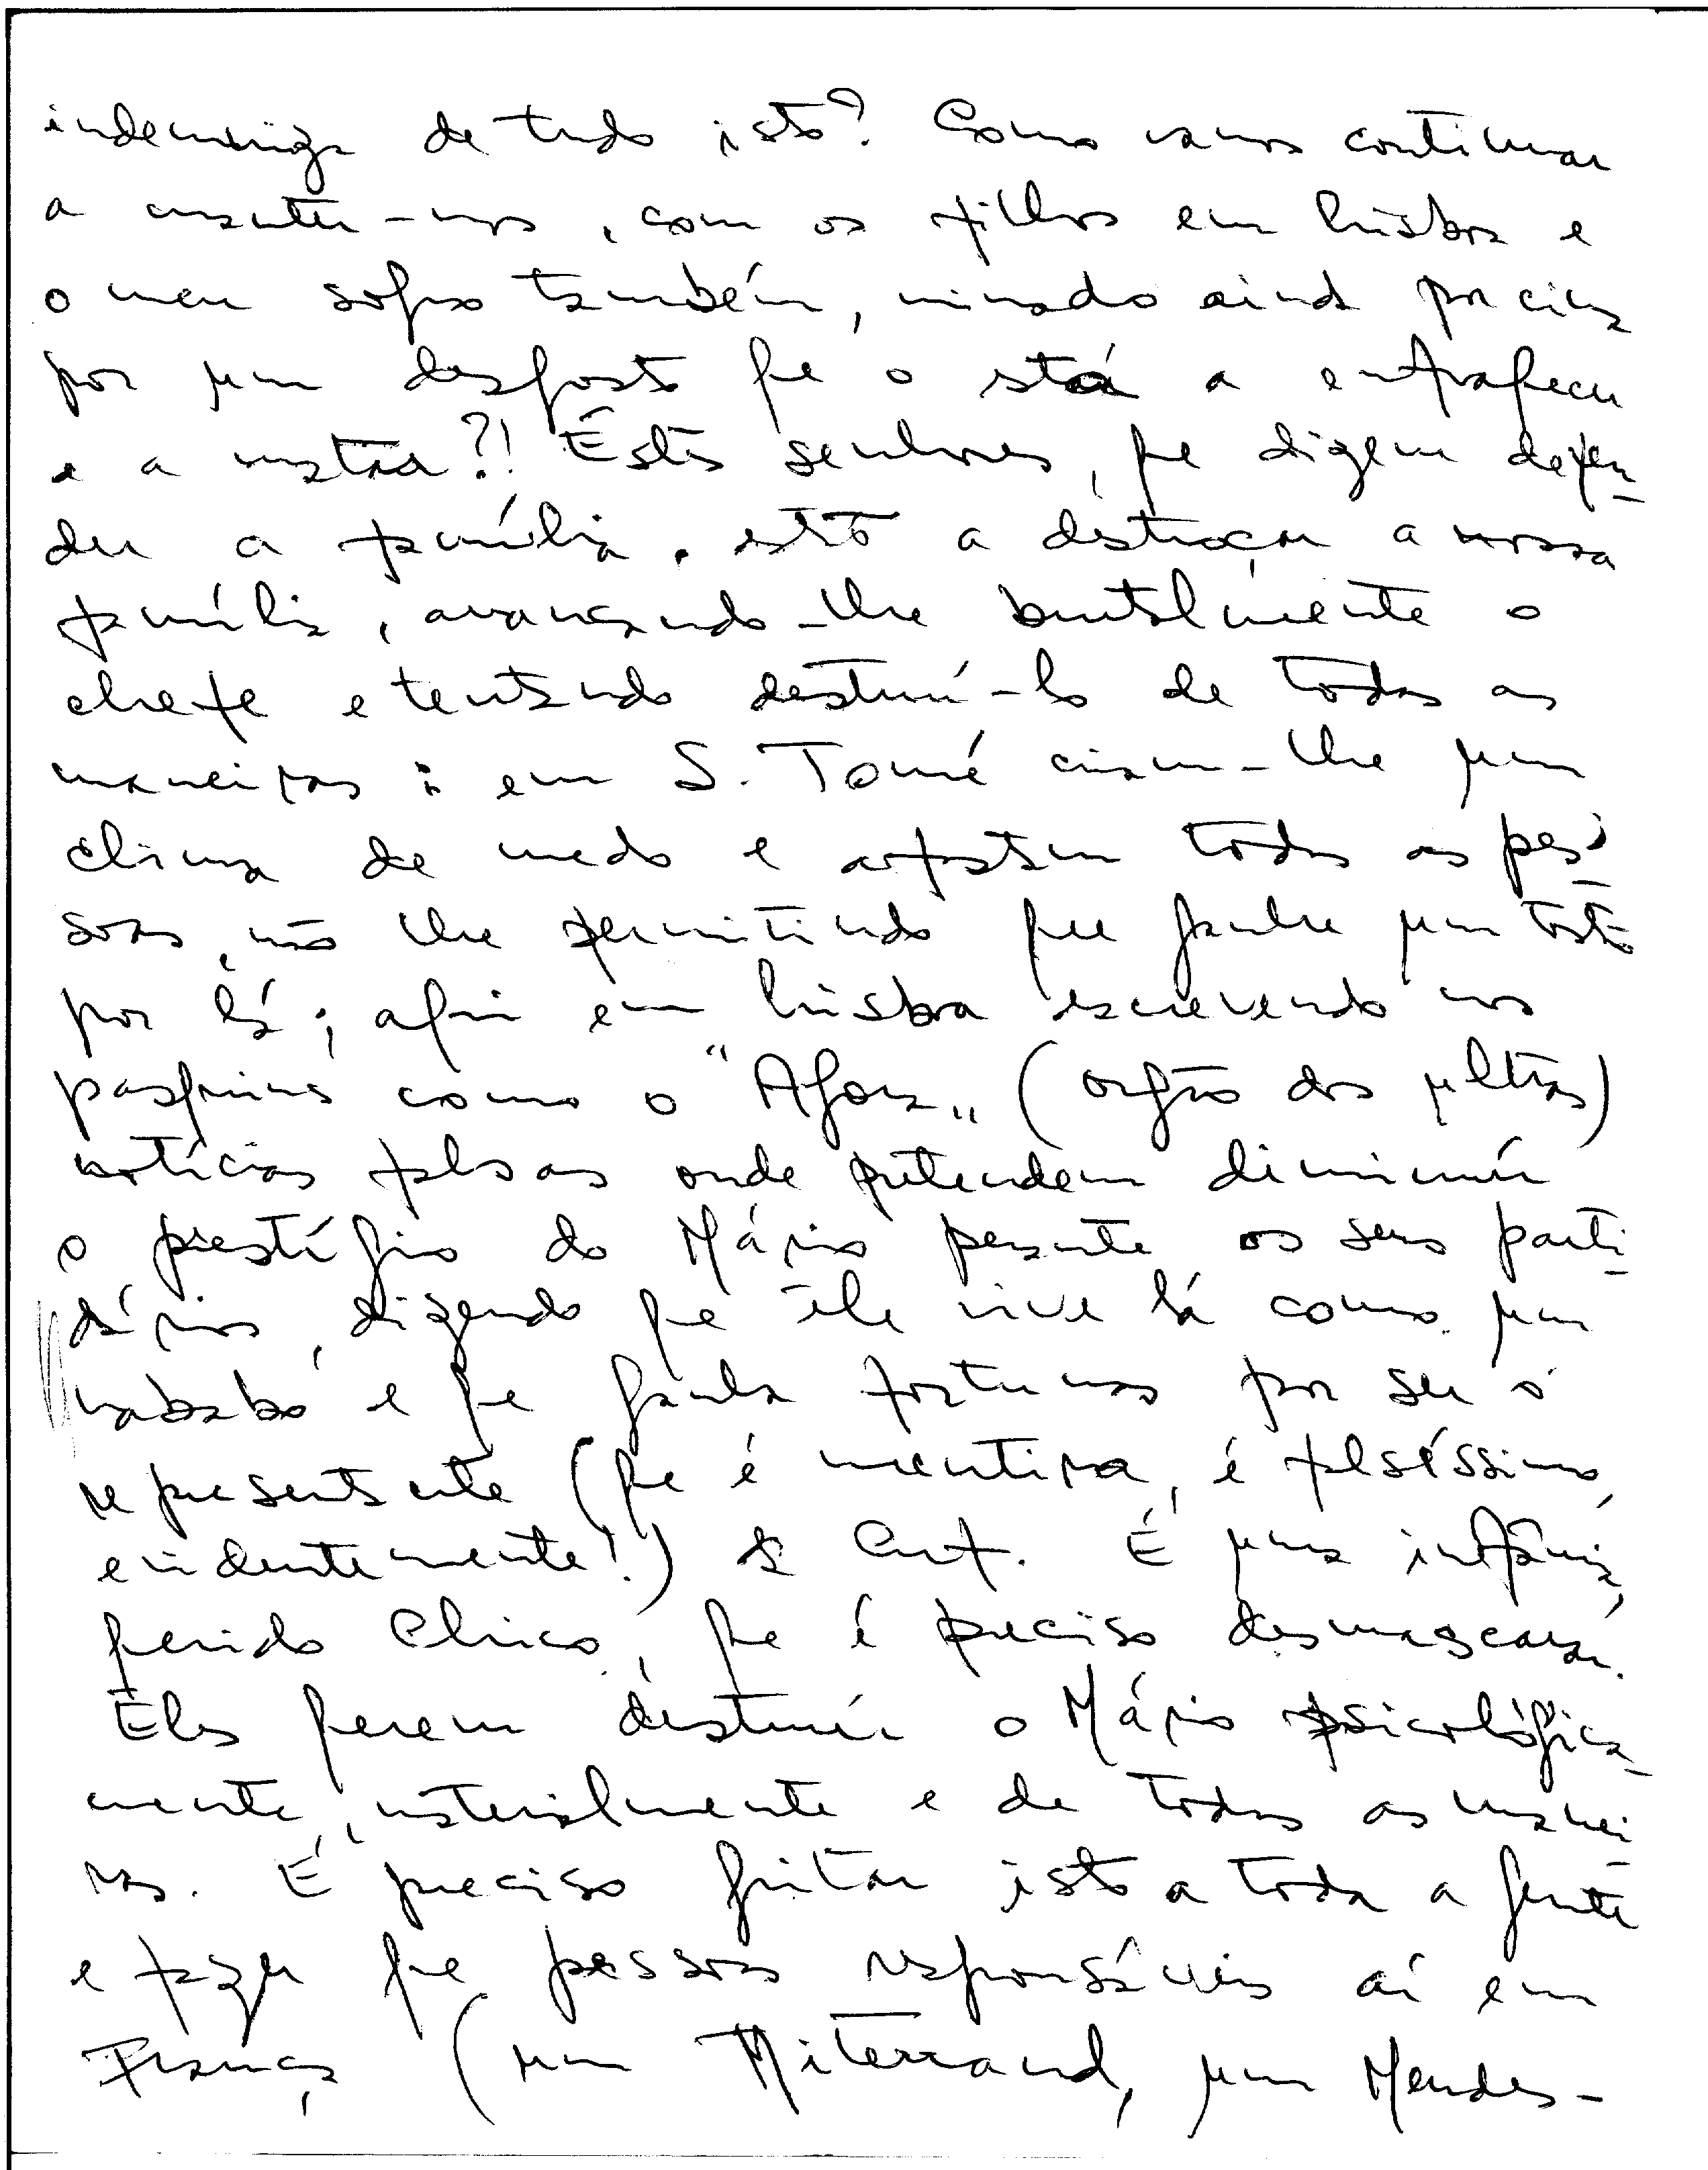 indemniza de tudo isto? Como vamos continuar
a manter-nos, com os filhos em Lisboa e
o meu sogro também, minado ainda por cima
por um desgosto que o está a enfraquecer
e a matar?! Êstes senhores, que dizem defen-
der a família, estão a destroçar a nossa
família, arrancando-lhe brutalmente o
chefe e tentando destruí-lo de todas as
maneiras: em S. Tomé criam-lhe um
clima de medo e afastam todas as pes-
soas, não lhe permitindo que ganhe um tostão
por lá; aqui em Lisboa escrevendo nos
pasquins como o "Agora" (orgão dos ultras)
notícias falsas onde pretendem diminuír
o prestígio do Mário perante os seus parti-
dários, dizendo que êle vive lá como um
nababo e que ganha fortunas por ser o
representante (que é mentira, é falsíssimo,
evidentemente!) da Cuf. É uma infâmia,
querido Chico, que é preciso desmascarar.
Êles querem destruír o Mário psicològica-
mente, materialmente e de todas as manei-
ras. É preciso gritar isto a toda a gente
e fazer que pessoas responsáveis aí em
França (um Miterrand, um Mendes-